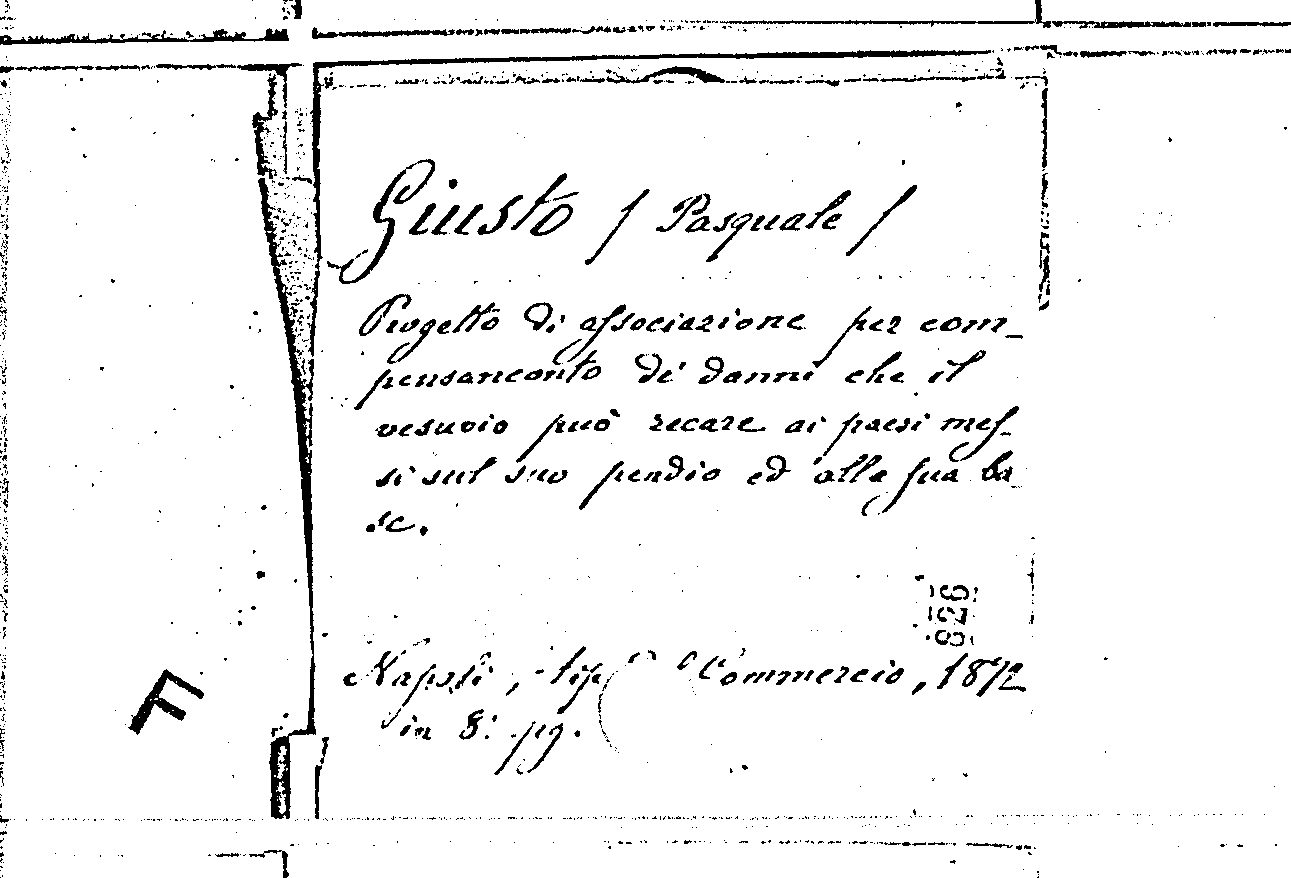 Giusto / Pasquale /
Progetto di associazione per com_
pensamento de' danni che il
vesuvio può recare ai paesi mes-
si sul suo pendio ed alla sua ba
se.
8256
Napoli, tip Commercio, 1872
in 8: pg.
F